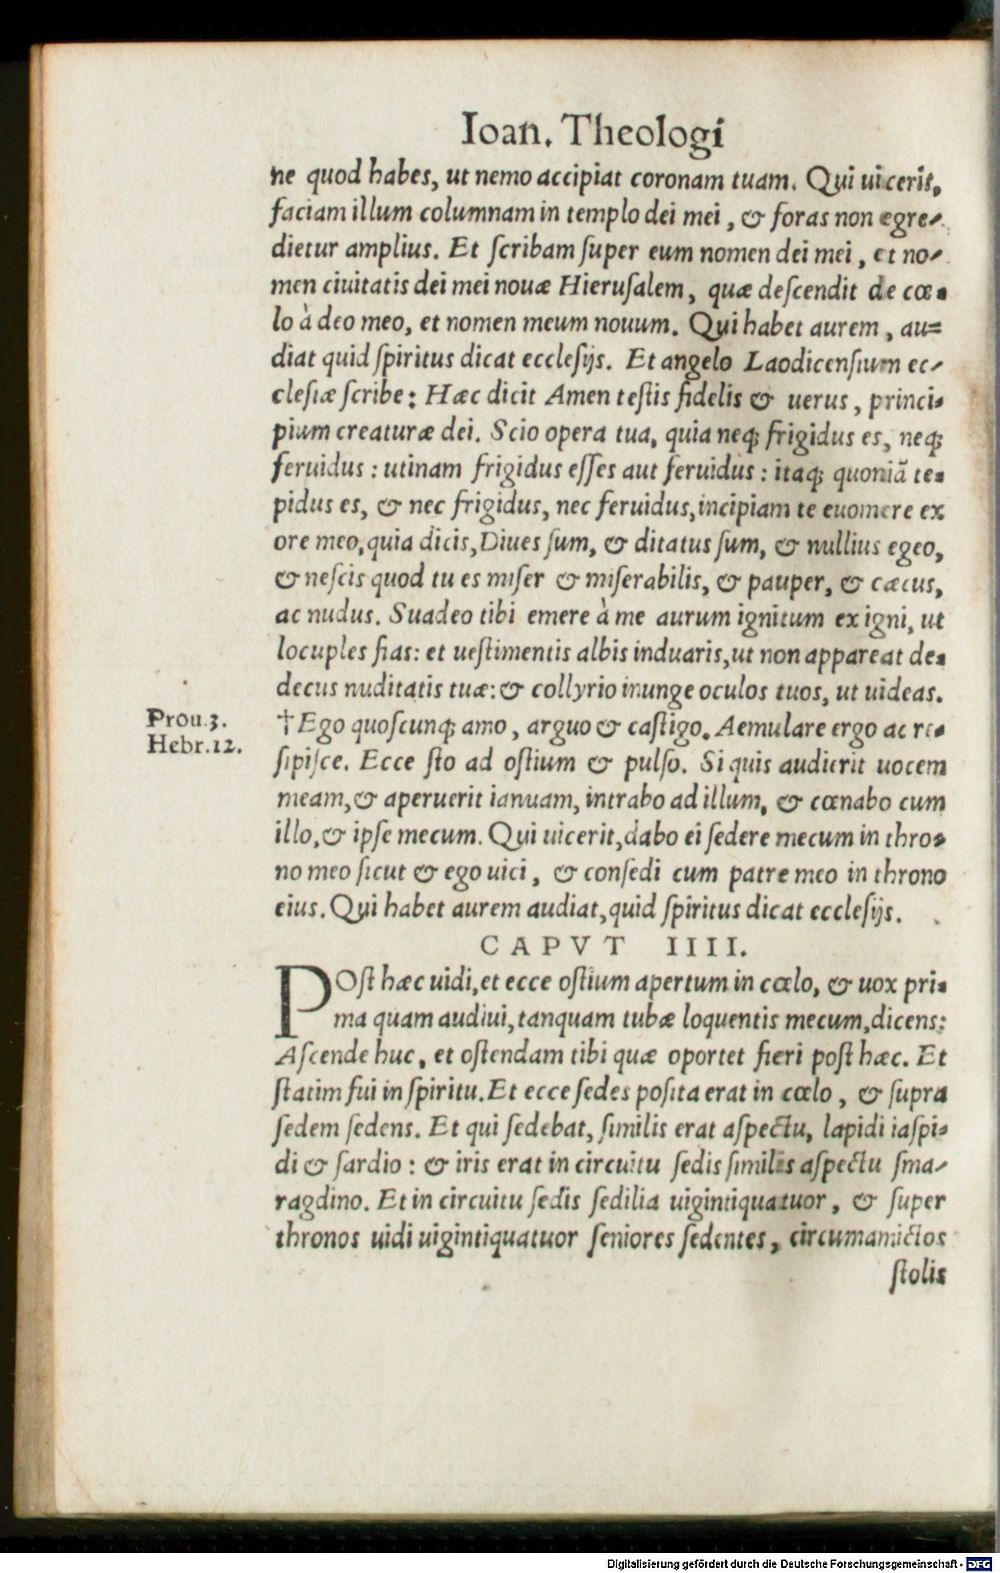 Ioan. Theologi
ne quod habes, ut nemo accipiat coronam tuam. Qui uicerit,
faciam illum columnam in templo dei mei, & foras non egre-
dietur amplius. Et scribam super eum nomen dei mei, et no-
men ciuitatis dei mei nouæ Hierusalem, quæ descendit de cœ-
lo à deo meo, et nomen meum nouum. Qui habet aurem, au-
diat quid spiritus dicat ecclesijs. Et angelo Laodicensium ec-
clesiæ scribe: Hæc dicit Amen testis fidelis & uerus, princi-
pium creaturæ dei. Scio opera tua, quia neq; frigidus es, neq;
feruidus: utinam frigidus esses aut feruidus: itaq; quoniã te-
pidus es, & nec frigidus, nec feruidus, incipiam te euomere ex
ore meo, quia dicis, Diues sum, & ditatus sum, & nullius egeo,
& nescis quod tu es miser & miserabilis, & pauper, & cæcus,
ac nudus. Suadeo tibi emere à me aurum ignitum ex igni, ut
locuples fias: et uestimentis albis induaris, ut non appareat de-
decus nuditatis tuæ: & collyrio inunge oculos tuos, ut uideas.
Prou.3.
Hebr.12.
†Ego quoscunq; amo, arguo & castigo. Aemulare ergo ac re-
sipisce. Ecce sto ad ostium & pulso. Si quis audierit uocem
meam, & aperuerit ianuam, intrabo ad illum, & cœnabo cum
illo, & ipse mecum. Qui uicerit, dabo ei sedere mecum in thro-
no meo sicut & ego uici, & consedi cum patre meo in throno
eius. Qui habet aurem audiat, quid spiritus dicat ecclesijs.
CAPVT IIII.
POst hæc uidi, et ecce ostium apertum in cœlo, & uox pri-
ma quam audiui, tanquam tubæ loquentis mecum, dicens:
Ascende huc, et ostendam tibi quæ oportet fieri post hæc. Et
statim fui in spiritu. Et ecce sedes posita erat in cœlo, & supra
sedem sedens. Et qui sedebat, similis erat aspectu, lapidi iaspi-
di & sardio: & iris erat in circuitu sedis similis aspectu sma-
ragdino. Et in circuitu sedis sedilia uigintiquatuor, & super
thronos uidi uigintiquatuor seniores sedentes, circumamictos
stolis
Digitalisierung gefördert durch die Deutsche Forschungsgemeinschaft - DFG